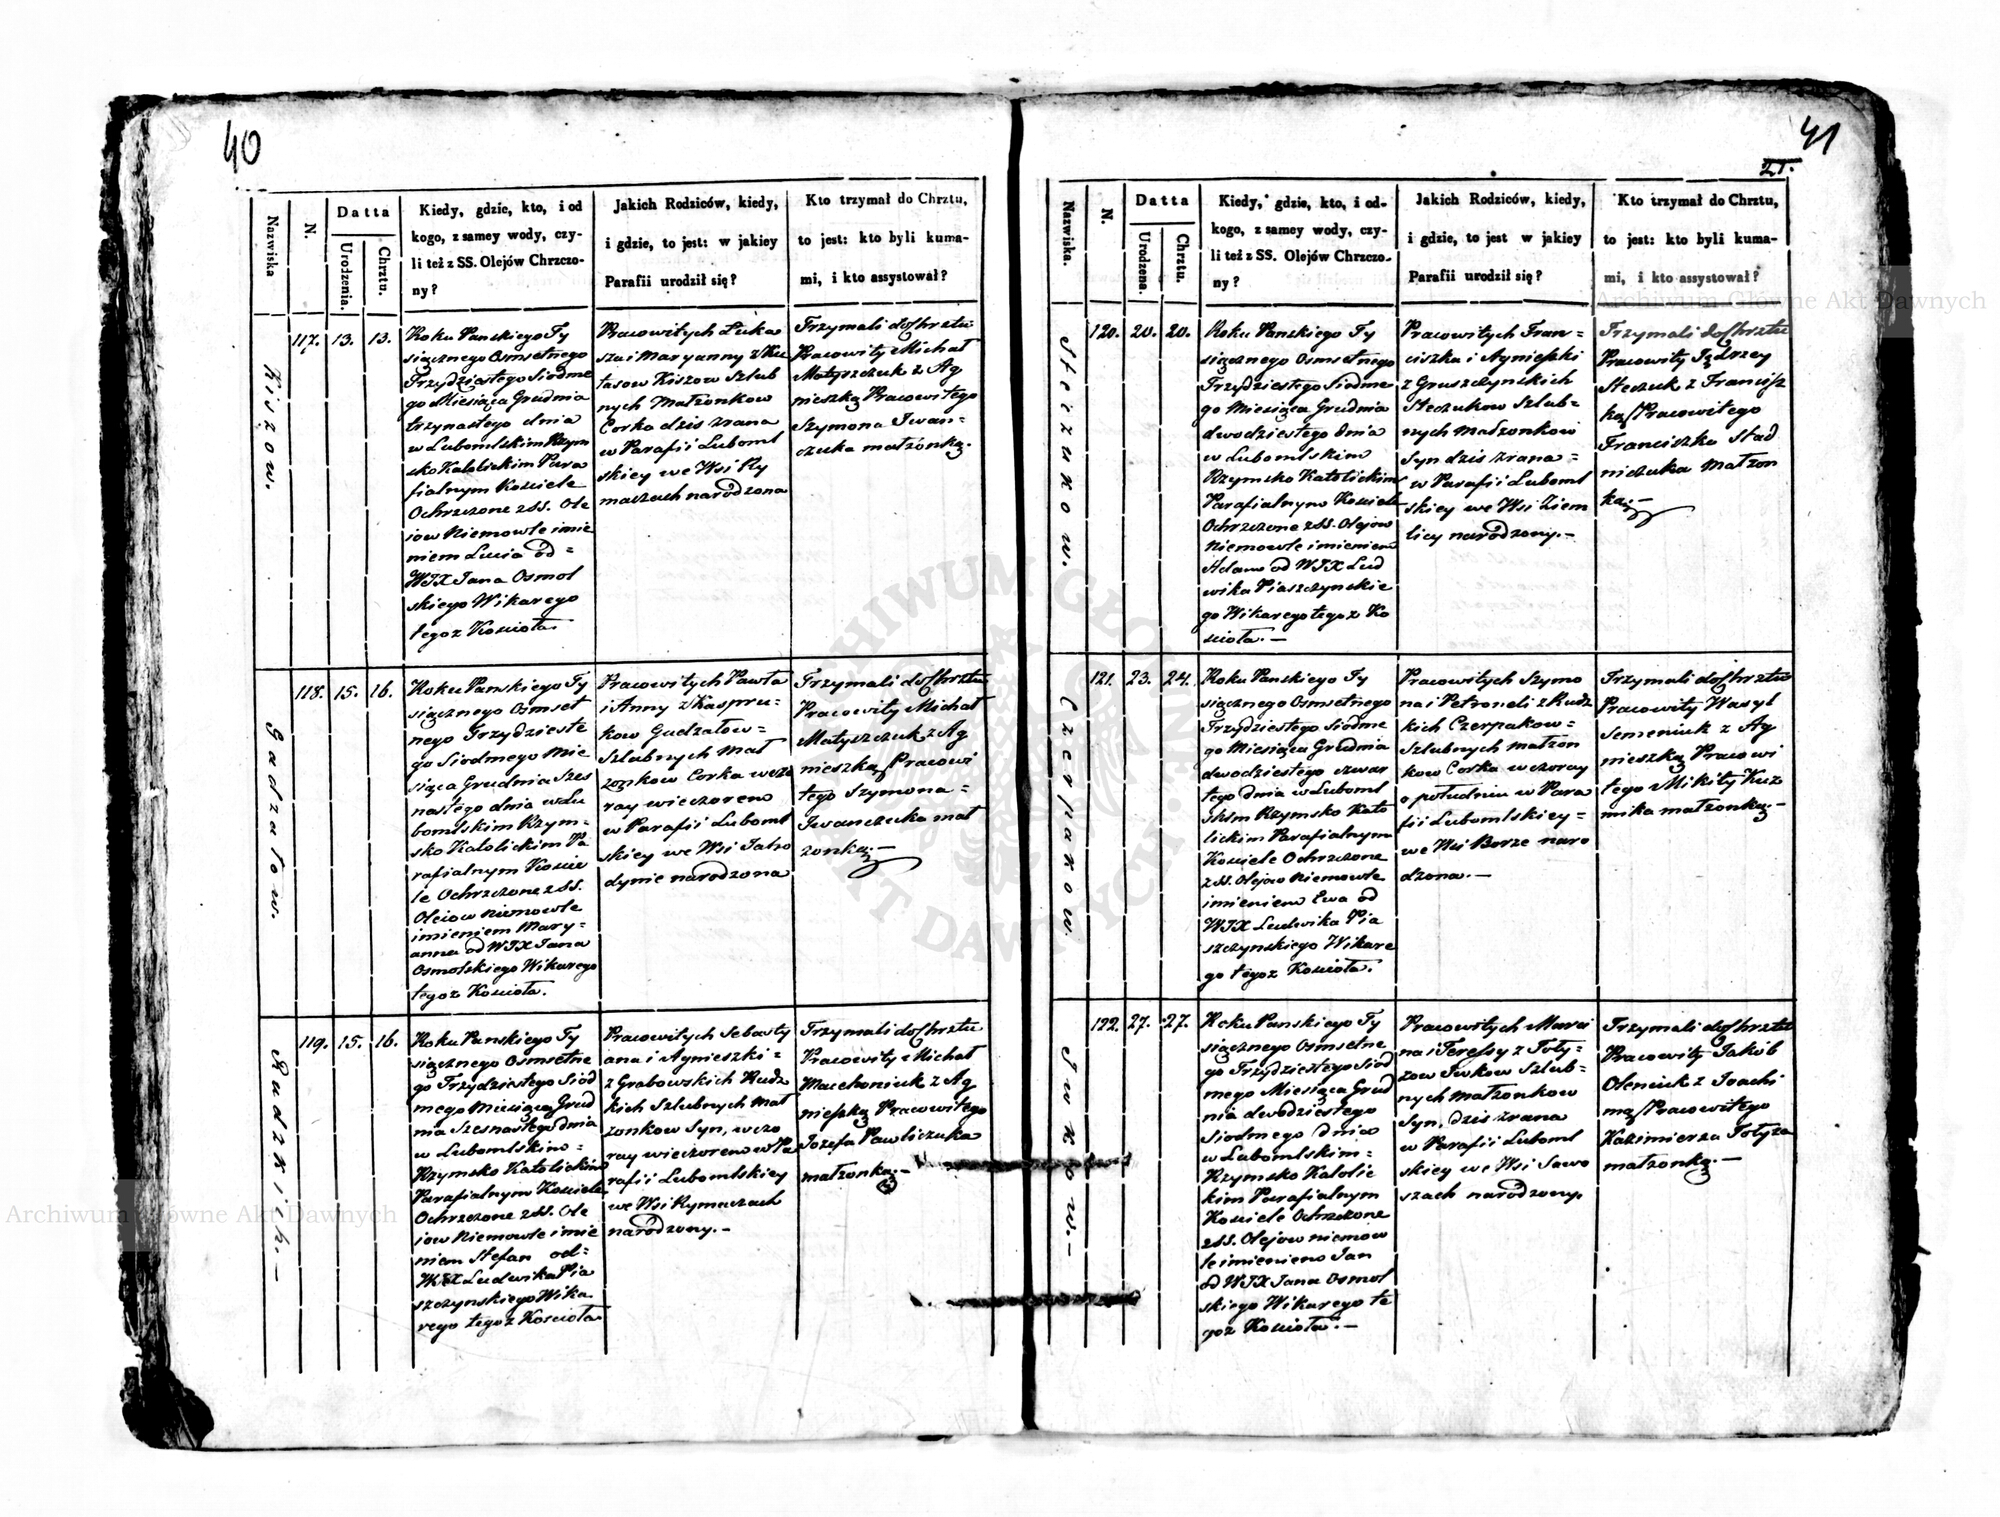 40
Nazwiska
N.
Datta
Urodzenia.
Chrztu.
Kiedy, gdzie, kto, i od
kogo, z samey wody, czy-
li też z SS. Olejów Chrzczo-
ny?
Jakich Rodziców, kiedy,
i gdzie, to jest: w jakiey
Parafii urodził się?
Kto trzymał do Chrztu,
to jest: kto byli kuma-
mi, i kto assystował?
Kiszow.
117.
13.
13.
Roku Panskiego Ty
siącznego Osmsetnego
Trzydziestego Siodme
go Miesiąca Grudnia
trzynastego dnia
w Lubomlskim Rzym
sko Katolickim Para
fialnym Kosciele
Ochrzczone z SS. Ole
iow Niemowle imie
niem Lucia od=
WJX Jana Osmol
skiego Wikarego
tegoz Kosciola.
Pracowitych Łuka
sza i Maryanny z Ku
tasow Kiszow Szlub
nych Małzonkow
Corka dzis zrana
w Parafii Luboml
skiey we Wsi Ry
maczach narodzona
Trzymali do Chrztu
Pracowity Michał
Matyszczuk z Ag
nieszką Pracowitego
Szymona Iwan-
czuka małzonką.
Gadzałow.
118.
15.
16.
Roku Panskiego Ty
siącznego Osmset
nego Trzydzieste
go Siodmego Mie
siąca Grudnia Szes
nastego dnia w Lu
bomlskim Rzym=
sko Katolickim Pa
rafialnym Koscie
le Ochrzczone z SS.
Oleiow Niemowle
imieniem Mary=
anna od WJX Jana
Osmolskiego Wikarego
tegoz Kosciola.
Pracowitych Pawła
i Anny z Kaspru=
kow Gudzałow=
Szlubnych Mał
zonkow Corka wczo
ray wieczorem
w Parafii Luboml
skiey we Wsi Jaho
dynie narodzona
Trzymali do Chrztu
Pracowity Michał
Matyszczuk z Ag
nieszką Pracowi
tego Szymona=
Iwanczuka mał
zonką.—
Rudzkich.—
119.
15.
16.
Roku Panskiego Ty
siącznego Osmsetne
go Trzydziestego Siod
mego Miesiąca Grud
nia Szesnastego dnia
w Lubomlskim=
Rzymsko Katolickim
Parafialnym Kosciele
Ochrzczone z SS. Ole
iow Niemowle imie
niem Stefan od=
WJX Ludwika Pia
szczynskiego Wika
rego tegoz Kosciola
Pracowitych Sebasty
ana i Agnieszki=
z Grabowskich Rudz
kich Szlubnych Mał
zonkow Syn, wczo
ray wieczorem w Pa
rafii Lubomlskiey
we Wsi Rymaczach
narodzony.—
Trzymali do Chrztu
Pracowity Michał
Machoniuk z Ag
nieszką Pracowitego
Jozefa Pawliczuka
małzonką.—
41
21.
Nazwiska.
N.
Datta
Urodzena.
Chrztu.
Kiedy, gdzie, kto, i od-
kogo, z samey wody, czy-
li też z SS. Olejów Chrzczo-
ny?
Jakich Rodziców, kiedy,
i gdzie, to jest w jakiey
Parafii urodził się?
Kto trzymał do Chrztu,
to jest: kto byli kuma-
mi, i kto assystował?
Steczukow.
120.
20.
20.
Roku Panskiego Ty
siącznego Osmsetnego
Trzydziestego Siodme
go Miesiąca Grudnia
dwodziestego dnia
w Lubomlskim
Rzymsko Katolickim
Parafialnym Kosciele
Ochrzczone z SS. Olejow
Niemowle imieniem
Adam od WJX Lud
wika Piaszczynskie
go Wikarego tegoz Ko
sciola.—
Pracowitych Fran=
ciszka i Agnieszki
z Gruszczynskich
Steczukow Szlub=
nych Małzonkow
Syn dzis zrana=
w Parafii Luboml
skiey we Wsi Ziem
licy narodzony.—
Trzymali do Chrztu
Pracowity Jędrzey
Steczuk z Francisz
ką Pracowitego
Franciszka Stad
niczuka Małzon
ką.—
Czerpakow.
121.
23.
24.
Roku Panskiego Ty
siącznego Osmsetnego
Trzydziestego Siodme
go Miesiąca Grudnia
dwodziestego czwar
tego dnia w Luboml
skim Rzymsko Kato
lickim Parafialnym
Kosciele Ochrzczone
z SS. Olejow Niemowle
imieniem Ewa od
WJX Ludwika Pia
szczynskiego Wikare
go tegoz Kosciola.
Pracowitych Szymo
na i Petroneli z Rudz
kich Czerpakow=
Szlubnych małzon
kow Corka wczoray
o południu w Para
fii Lubomlskiey=
we Wsi Borze naro
dzona.—
Trzymali do Chrztu
Pracowity Wasyl
Semeniuk z Ag
nieszką Pracowi
tego Mikity Kuz
mika małzonką.—
Iwkow.—
122.
27.
27.
Roku Panskiego Ty
siącznego Osmsetne
go Trzydziestego Siod
mego Miesiąca Grud
nia dwodziestego
Siodmego dnia
w Lubomlskim=
Rzymsko Katolic
kim Parafialnym
Kosciele Ochrzczone
z SS. Olejow niemow
le imieniem Jan
od WJX Jana Osmol
skiego Wikarego te
goz Kosciola.—
Pracowitych Marci
na i Teressy z Toty=
zow Iwkow Szlub=
nych małzonkow
Syn, dzis zrana
w Parafii Luboml
skiey we Wsi Sawo
szach narodzony.
Trzymali do Chrztu
Pracowity Jakób
Oleniuk z Joachi
mą Pracowitego
Kazimierza Totyza
małzonką.—
Archiwum Główne Akt Dawnych
Archiwum Główne Akt Dawnych
ARCHIWUM GŁÓWNE AKT DAWNYCH